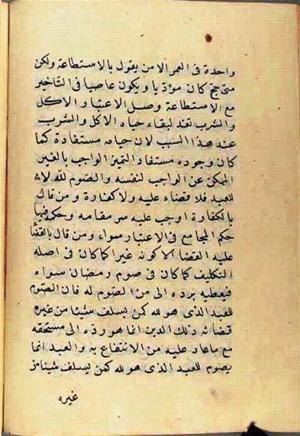 واحدة في العمر الا من يقول بالاستطاعة ولكن
متى حج كان مؤديا ويكون عاصيا في التأخير
مع الاستطاعة وصل الاعتبار والاكل
والشرب تغذ لبقاء حياة الاكل والشرب
عند هذا السبب لان حياته مستفادة كما
كان وجوده مستفاد التميز الواجب بالغير
الممكن عن الواجب لنفسه والصوم لله لا
للعبد فلا قضاء عليه ولا كفارة ومن قال
بالكفارة اوجب عليه ستر مقامه وحكمه فيها
حكم المجامع في الاعتبار سواء ومن قال بالقضا
عليه القضا الا كونه غيرا كما كان في اصله
التكليف كما كان في صوم رمضان سواء
فيعطيه برده الى من الصوم له فان الصوم
للعبد الذى هو لله كمن يسلف شيئا من غيره
قضائه ذلك الدين انما هو رده الى مستحقه
مع ماعاد عليه من الانتفاع به والعبد انما
يصوم للعبد الذى هو لله كمن يسلف شيئا من
غيره